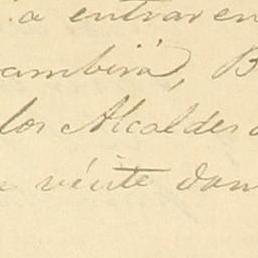 a entrar en
ambirá), B
los Alcaldes
veíte don